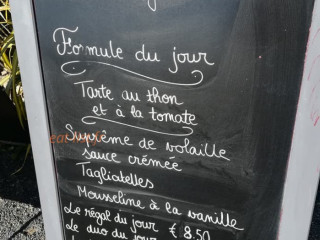 Formule du jour
Tarte au thon
et à la tomate
Suprême de volaille
sauce crémée
Tagliatelles
Mousseline à la vanille
Le régal du jour € 8.50
Le duo du jour